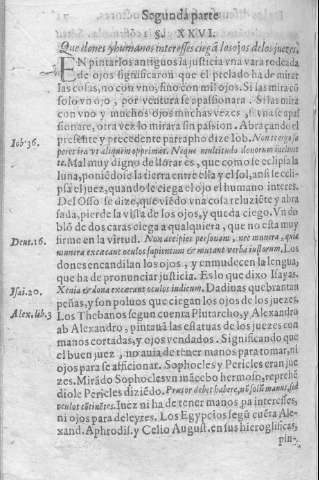 Segunda parte
§. XXVI.
Que dones y humanos interesses ciegā los ojos de los juezes.
EN pintar los antiguos la justicia vna vara rodeada
de ojos significaron que el prelado ha de mirar
las cosas, no con vno, sino con mil ojos. Si las mira cō
solo vn ojo, por ventura se apassionara. Si las mira
con vno y muchos ojos muchas vezes, si vna se apas
sionare, otra vez lo mirara sin passion. Abraçando el
Iob 36.
presente y precedente parrapho dize Iob. Non ergo te
peret ira vt aliquem opprimas. Neque multitudo donorum inclinet
te. Mal muy digno de llorar es, que como se eclipsa la
luna, poniēdose la tierra entre ella y el sol, ansi se ecli
psa el juez, quando le ciega el ojo el humano interes.
Del Osso se dize, que viēdo vna cosa reluziēte y abra
sada, pierde la vista de los ojos, y queda ciego. Vn do
blō de dos caras ciega a qualquiera, que no esta muy
Deut. 16.
firme en la virtud. Non accipies personam, nec munera, quia
munera excæcant oculos sapientium & mutant verba iustorum. Los
dones encandilan los ojos, y enmudecen la lengua,
que ha de pronunciar justicia. Es lo que dixo Isayas.
Isai. 20.
Xenia & dona excæcant oculos iudicum. Dadiuas quebrantan
peñas, y son poluos que ciegan los ojos de los juezes.
Alex. lib. 3
Los Thebanos segun cuenta Plutarcho, y Alexandro
ab Alexandro, pintauā las estatuas de los juezes con
manos cortadas, y ojos vendados. Significando que
el buen juez, no auia de tener manos para tomar, ni
ojos para se afficionar. Sophocles y Pericles eran jue
zes. Mirādo Sophocles vn mācebo hermoso, reprehē
diole Pericles diziēdo. Prætor debet habere, nō solū manus, sed
oculos cōtinētes. Iuez ni ha de tener manos pa interesses,
ni ojos para deleytes. Los Egypcios segū cuēta Ale-
xand. Aphrodis. y Celio August. en sus hieroglificas,
pin-